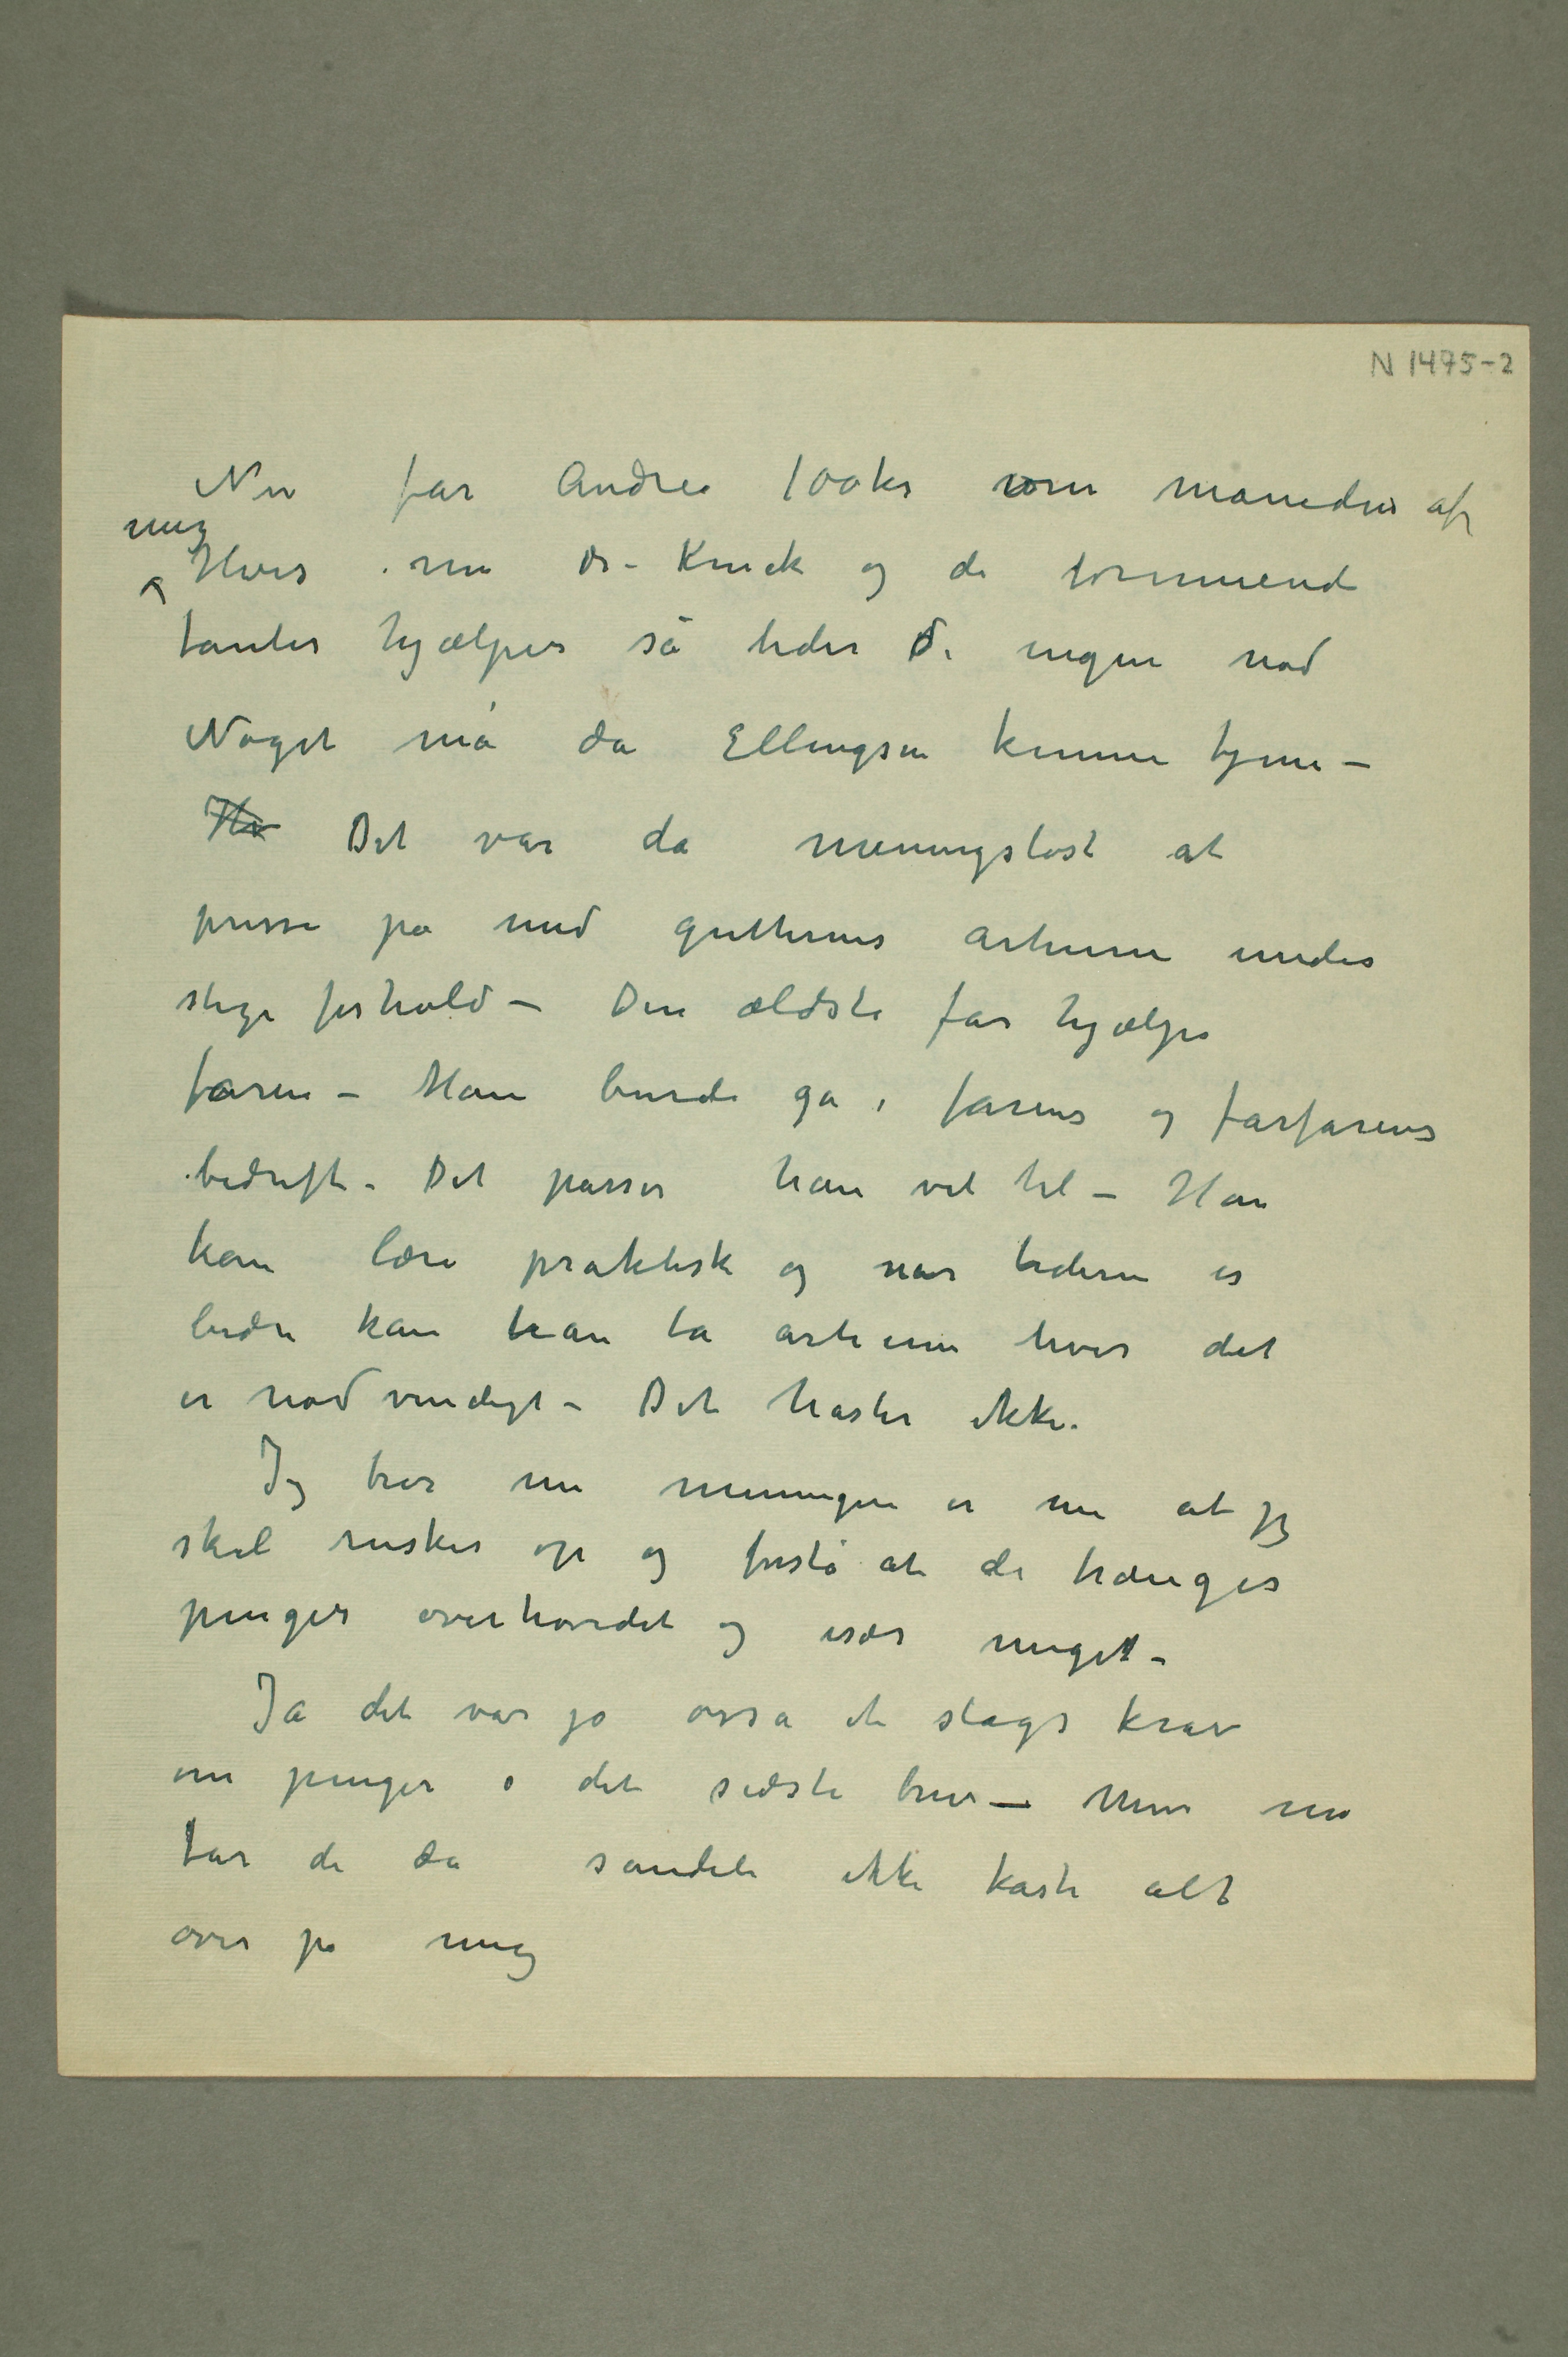 N 1475-2
Nu får Andrea 100kr om måneden af
mig
Hvis nu Dr. Kruck og de formuend
tanter hjælper så lider De ingen nød
Noget må da Ellingsen kunne tjene –
Hv Det var da meningsløst at
presse på med gutternes artium under
slige forhold – Den ældste får hjælpe
faren – Han burde gå i farens og farfarens
bedrift. Det passer han vel til – Han
kan lære praktisk og når tiderne er
bedre kan han ta artium hvis det
er nødvendigt – Det haster ikke.
Jeg tror nu meningen er nu at jeg
skal ruskes op og forstå at de trænger
penger overhovedet og især meget –
Ja det var jo osså et slags krav
om penger i det sidste brev – Men nu
får de da sandeli ikke kaste alt
over på mig